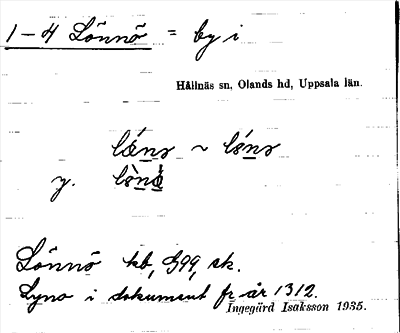 1-4 Lönnö = by i
Hållnäs sn, Olands hd, Uppsala län.
lǿnə ~ lǿnə
y.
Lönnö kb, G99, sk.
Lyno i dokument fr år 1312.
Ingegärd Isaksson 1935.